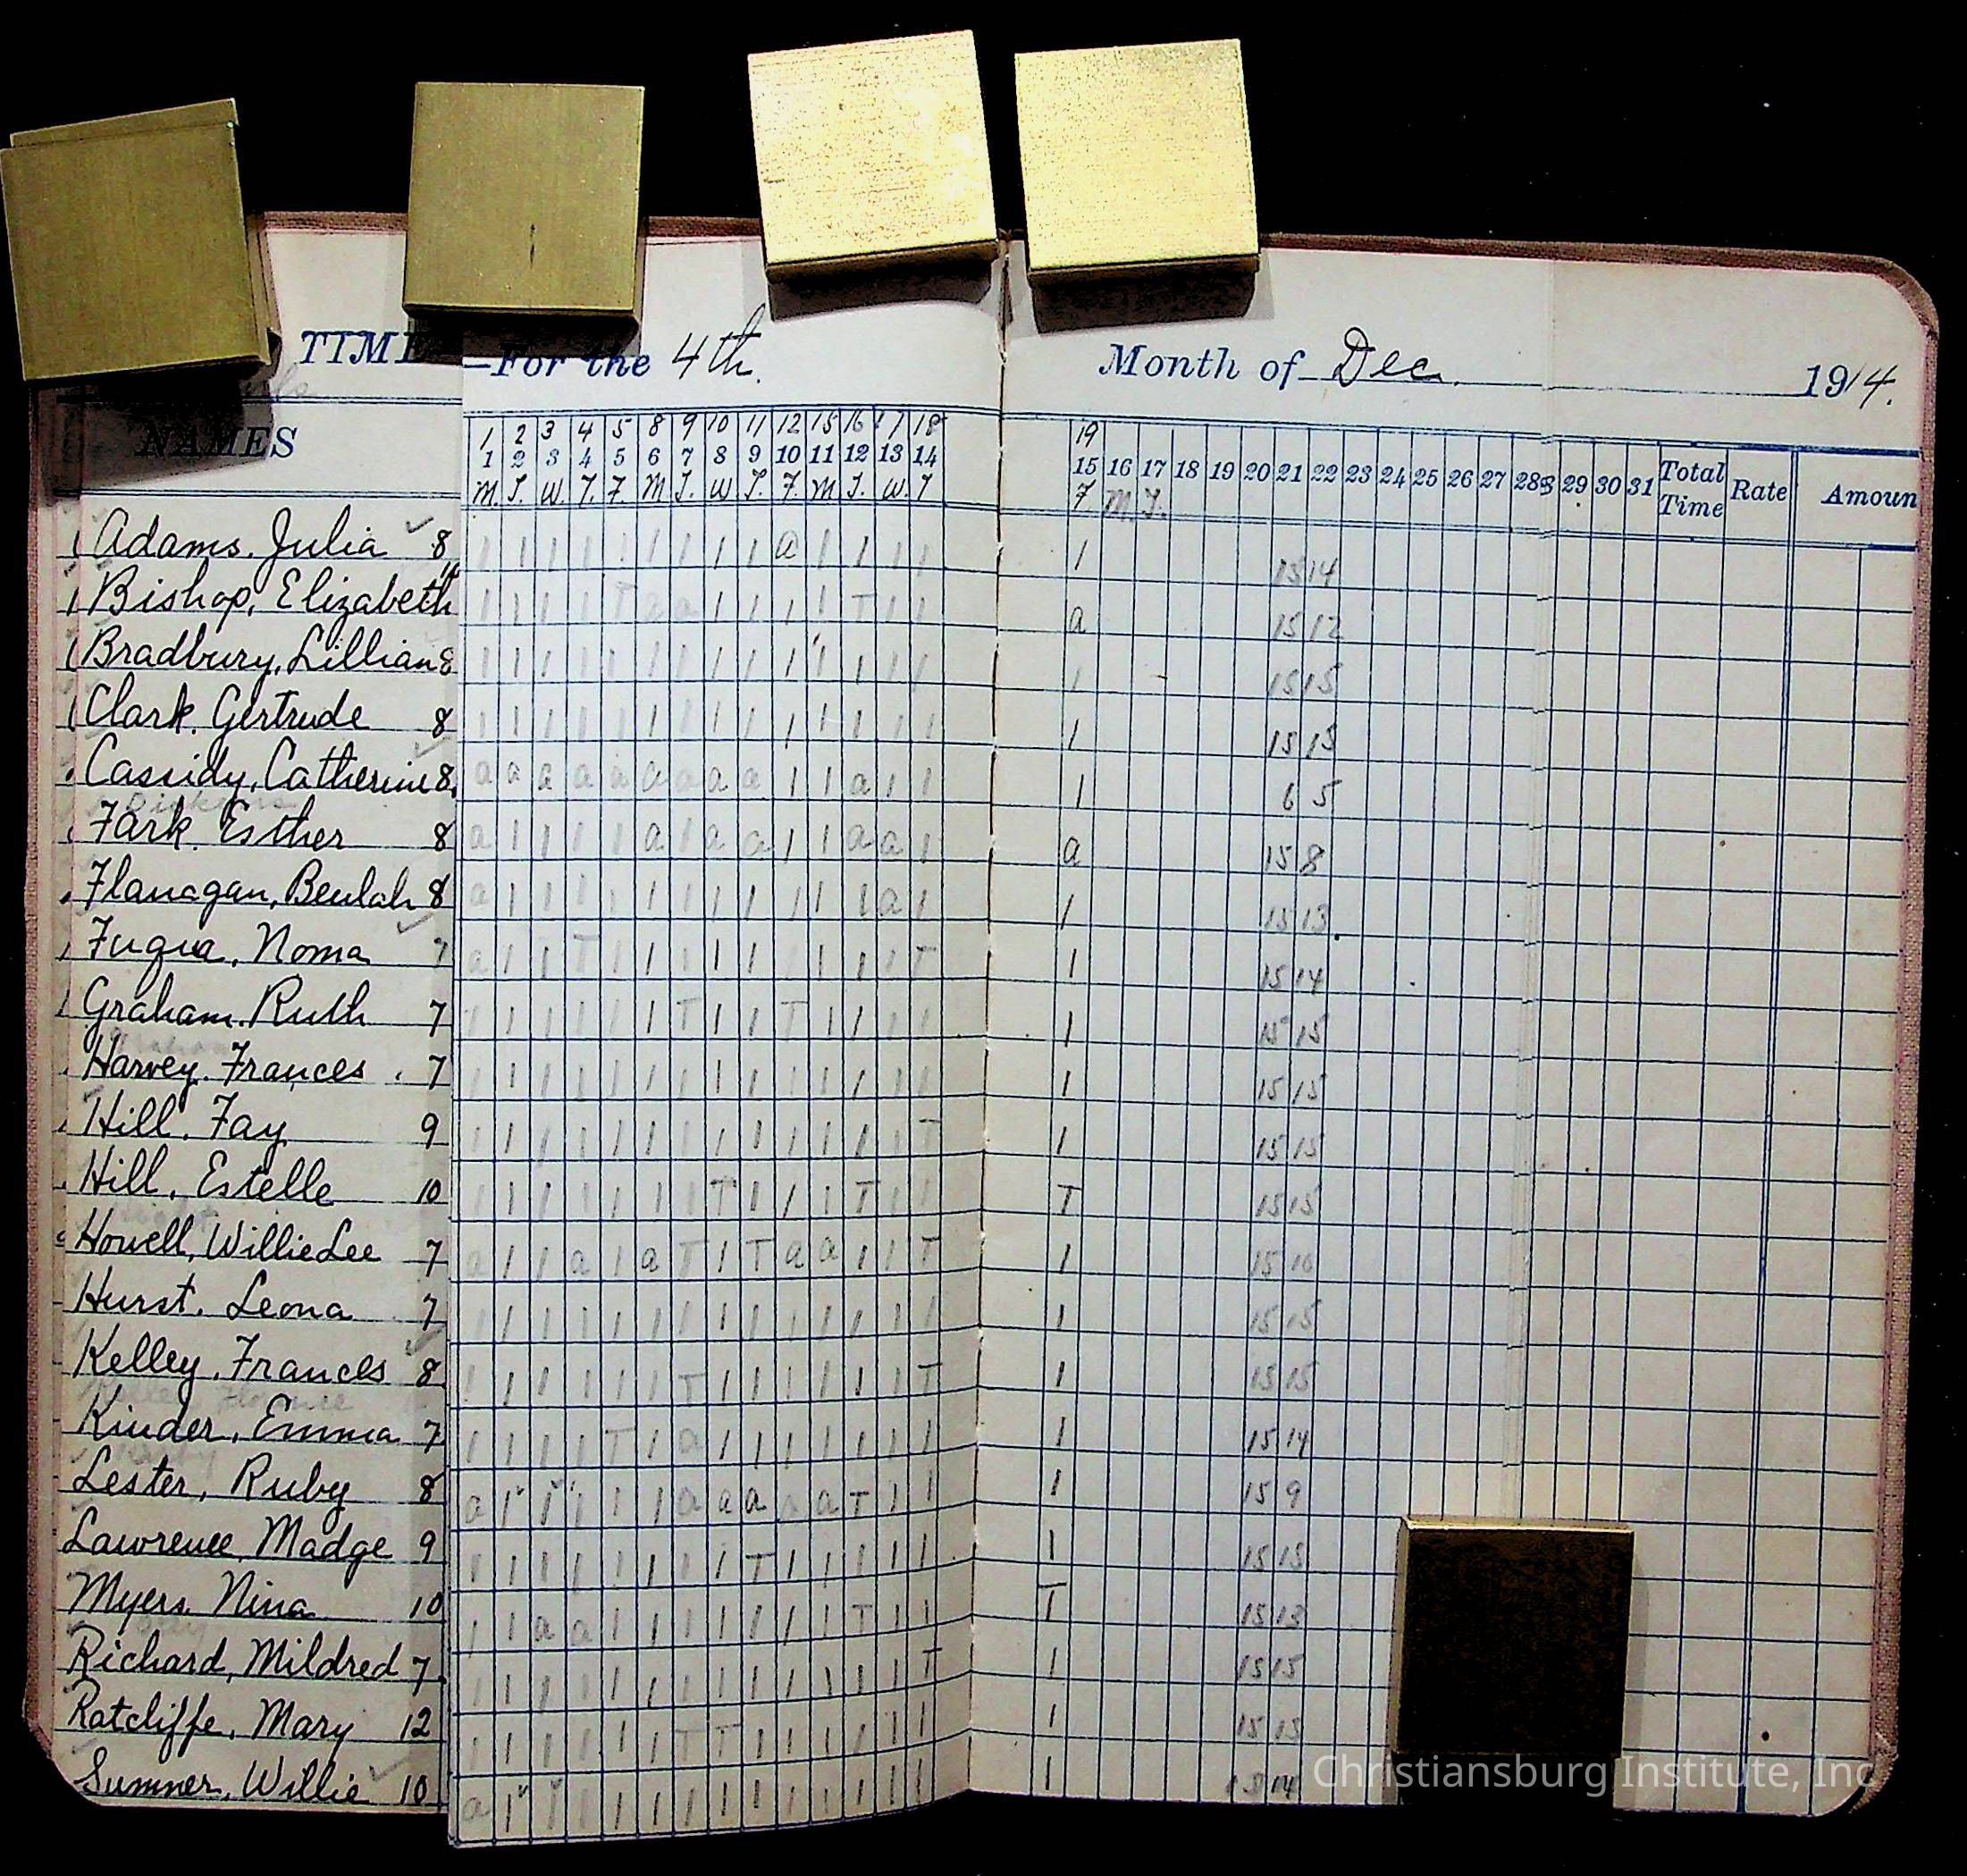 TIME —For the 4th. Month of Dec. 1914.
NAMES
1 2 3 4 5 8 9 10 11 12 15 16 17 18 19
1 2 3 4 5 6 7 8 9 10 11 12 13 14 15 16 17 18 19 20 21 22 23 24 25 26 27 28 29 30 31 Total Time Rate Amoun
M. T. W. T. F. M T. W T. F. M T. W. T F M. T.
Adams. Julia 8 1 1 1 1 1 1 1 1 1 a 1 1 1 1 1 15 14
Bishop, Elizabeth 1 1 1 1 T a a 1 1 1 1 T 1 1 a 15 12
Bradbury, Lillian 8 1 1 1 1 1 1 1 1 1 1 1 1 1 1 1 15 15
Clark. Gertrude 8 1 1 1 1 1 1 1 1 1 1 1 1 1 1 1 15 15
Cassidy, Catherine 8. a a a a a a a a a 1 1 a 1 1 1 6 5
Fark. Esther 8 a 1 1 1 1 a 1 a a 1 1 a a 1 a 15 8
Flanagan, Beulah 8 a 1 1 1 1 1 1 1 1 1 1 1 a 1 1 15 13
Fuqua, Noma 7 a 1 1 T 1 1 1 1 1 1 1 1 1 T 1 15 14
Graham. Ruth 7 1 1 1 1 1 1 T 1 1 T 1 1 1 1 1 15 15
Harvey. Frances. 7 1 1 1 1 1 1 1 1 1 1 1 1 1 1 1 15 15
Hill. Fay 9 1 1 1 1 1 1 1 1 1 1 1 1 1 T 1 15 15
Hill, Estelle 10 1 1 1 1 1 1 1 T 1 1 1 T 1 1 T 15 15
Howell, Willie Lee 7 a 1 1 a 1 a T 1 T a a 1 1 T 1 15 10
Hurst. Leona 7 1 1 1 1 1 1 1 1 1 1 1 1 1 1 1 15 15
Kelley, Frances 8 1 1 1 1 1 1 T 1 1 1 1 1 1 T 1 15 15
Kinder, Emma 7 1 1 1 1 T 1 a 1 1 1 1 1 1 1 1 15 14
Lester, Ruby 8 a 1 1 1 1 1 a a a a a T 1 1 1 15 9
Lawrence, Madge 9 1 1 1 1 1 1 1 1 T 1 1 1 1 1 1 15 15
Myers. Nina 10 1 1 a a 1 1 1 1 1 1 1 T 1 1 T 15 13
Richard, Mildred 7 1 1 1 1 1 1 1 1 1 1 1 1 1 T 1 15 15
Ratcliffe, Mary 12 1 1 1 1 1 1 T T 1 1 1 1 1 1 1 15 15
Sumner, Willie 10 a 1 1 1 1 1 1 1 1 1 1 1 1 1 1 15 14
Christiansburg Institute, Inc